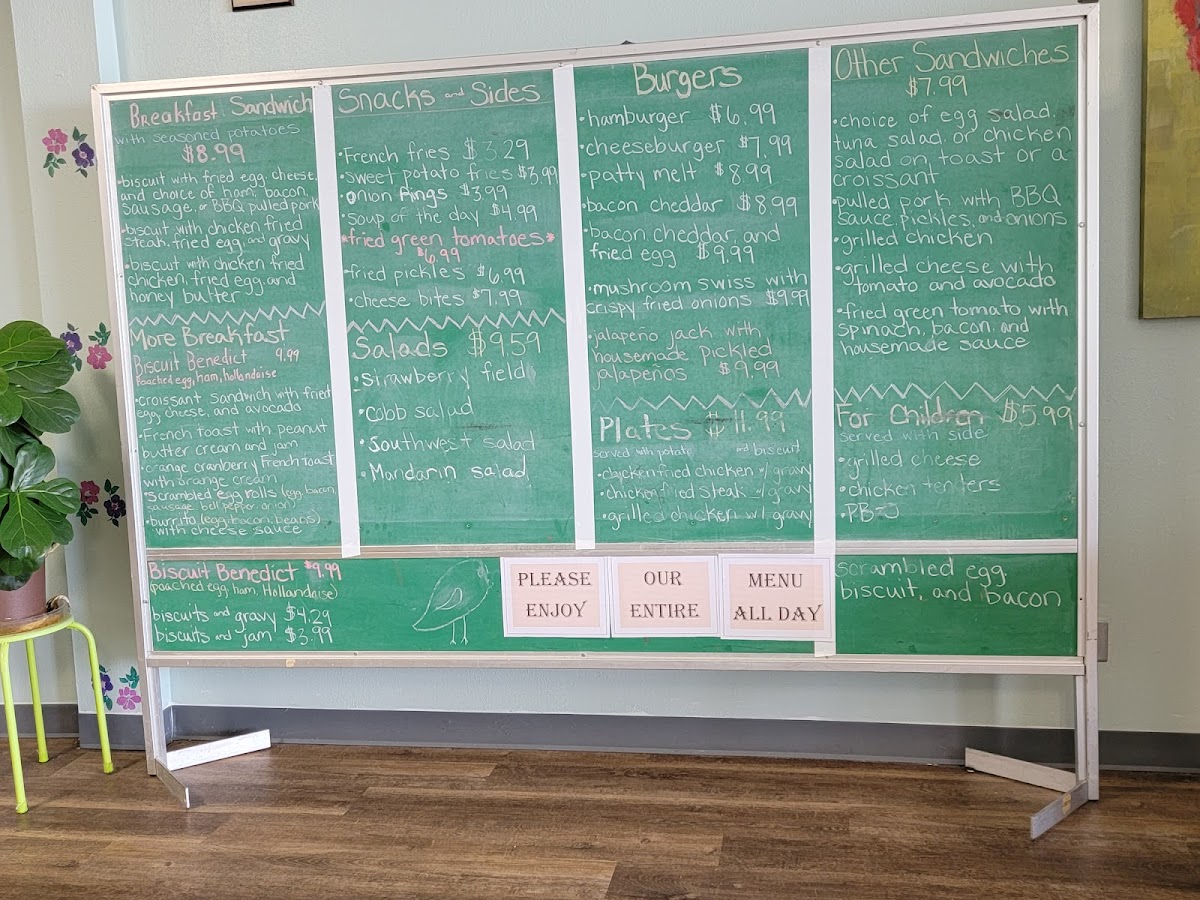 Breakfast Sandwich
with seasoned potatoes
$8.99
•biscuit with fried egg, cheese,
and choice of ham, bacon,
sausage, or BBQ pulled pork
•biscuit with chicken fried
steak, fried egg, and gravy
•biscuit with chicken fried
chicken, fried egg, and
honey butter
More Breakfast
Biscuit Benedict 9.99
Poached egg, ham, hollandaise
•croissant sandwich with fried
egg, cheese, and avocado
•French toast with peanut
butter cream and jam
•orange cranberry French toast
with orange cream
•scrambled egg rolls (egg, bacon,
sausage, bell pepper, onion)
•burrito (egg, bacon, beans)
with cheese sauce
Biscuit Benedict $9.99
(poached egg, ham, Hollandaise)
biscuits and gravy $4.29
biscuits and jam $3.99
Snacks and Sides
•French fries $3.29
•sweet potato fries $3.99
•onion rings $3.99
•soup of the day $4.99
*fried green tomatoes*
$6.99
•fried pickles $6.99
•cheese bites $7.99
Salads $9.59
•strawberry field
•cobb salad
•Southwest salad
•Mandarin salad
Burgers
•hamburger $6.99
•cheeseburger $7.99
•patty melt $8.99
•bacon cheddar $8.99
•bacon cheddar and
fried egg $9.99
•mushroom swiss with
crispy fried onions $9.99
•jalapeño jack with
housemade pickled
jalapeños $9.99
Plates $11.99
served with potato and biscuit
•chicken fried chicken w/ gravy
•chicken fried steak w/ gravy
•grilled chicken w/ gravy
PLEASE
ENJOY
OUR
ENTIRE
MENU
ALL DAY
Other Sandwiches
$7.99
•choice of egg salad,
tuna salad, or chicken
salad on toast or a
croissant
•pulled pork with BBQ
sauce, pickles, and onions
•grilled chicken
•grilled cheese with
tomato and avocado
•fried green tomato with
spinach, bacon, and
housemade sauce
For Children $5.99
served with side
•grilled cheese
•chicken tenders
•PB+J
scrambled egg,
biscuit, and bacon